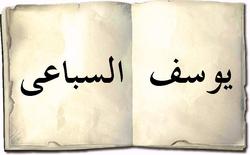 يوسف السباعى